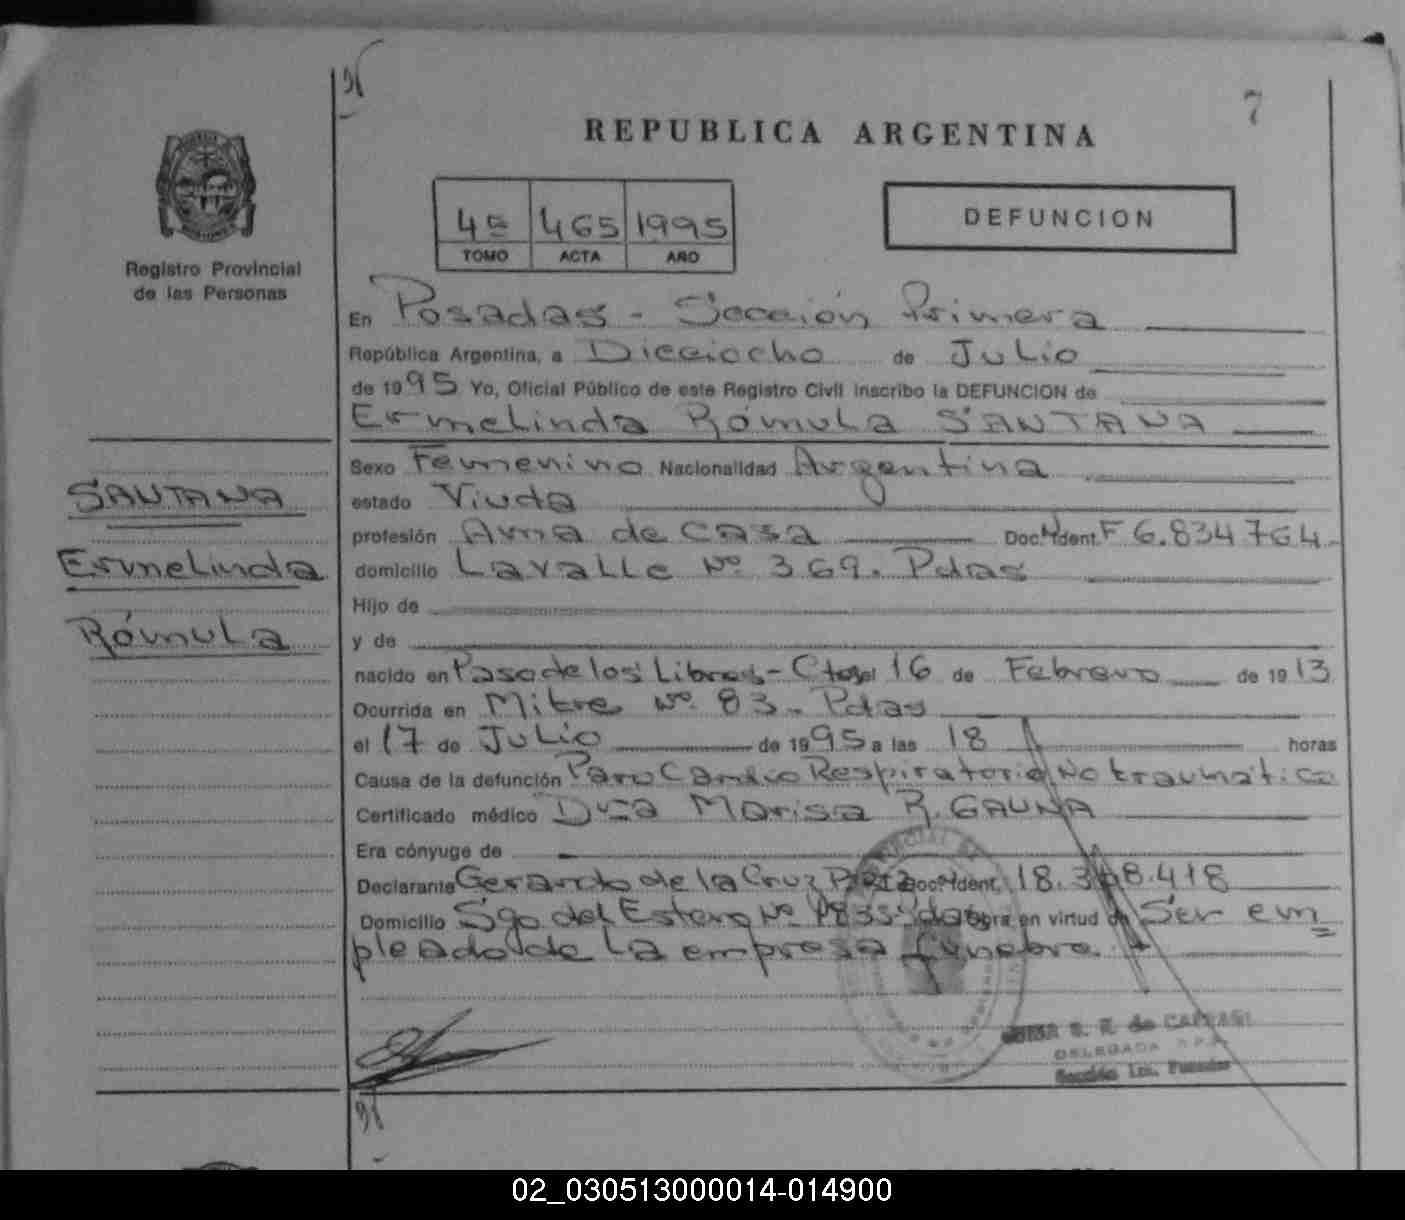 7
REPUBLICA ARGENTINA
Registro Provincial
de las Personas
45 465 1995
TOMO ACTA AÑO
DEFUNCION
En Posadas - Sección Primera
República Argentina, a Dieciocho de Julio
de 1995 Yo, Oficial Público de este Registro Civil inscribo la DEFUNCION de
Ermelinda Rómula SANTANA
SANTANA
Ermelinda
Rómula
Sexo Femenino Nacionalidad Argentina
estado Viuda
profesión Ama de casa Doc. Ident. F 6.834764-
domicilio Lavalle Nº 369. Pdas
Hijo de
y de
nacido en Paso de los Libres - Ctes el 16 de Febrero de 1913
Ocurrida en Mitre Nº 83. Pdas
el 17 de Julio de 1995 a las 18 horas
Causa de la defunción Paro Cardio Respiratorio No traumático
Certificado médico Dra Marisa R. GAUNA
Era cónyuge de -
Declarante Gerardo de la Cruz Doc. Ident. 18.
Domicilio Sgo del Estero Nº obra en virtud de Ser em
pleado de la empresa fúnebre.
DELEGADA
02_030513000014-014900